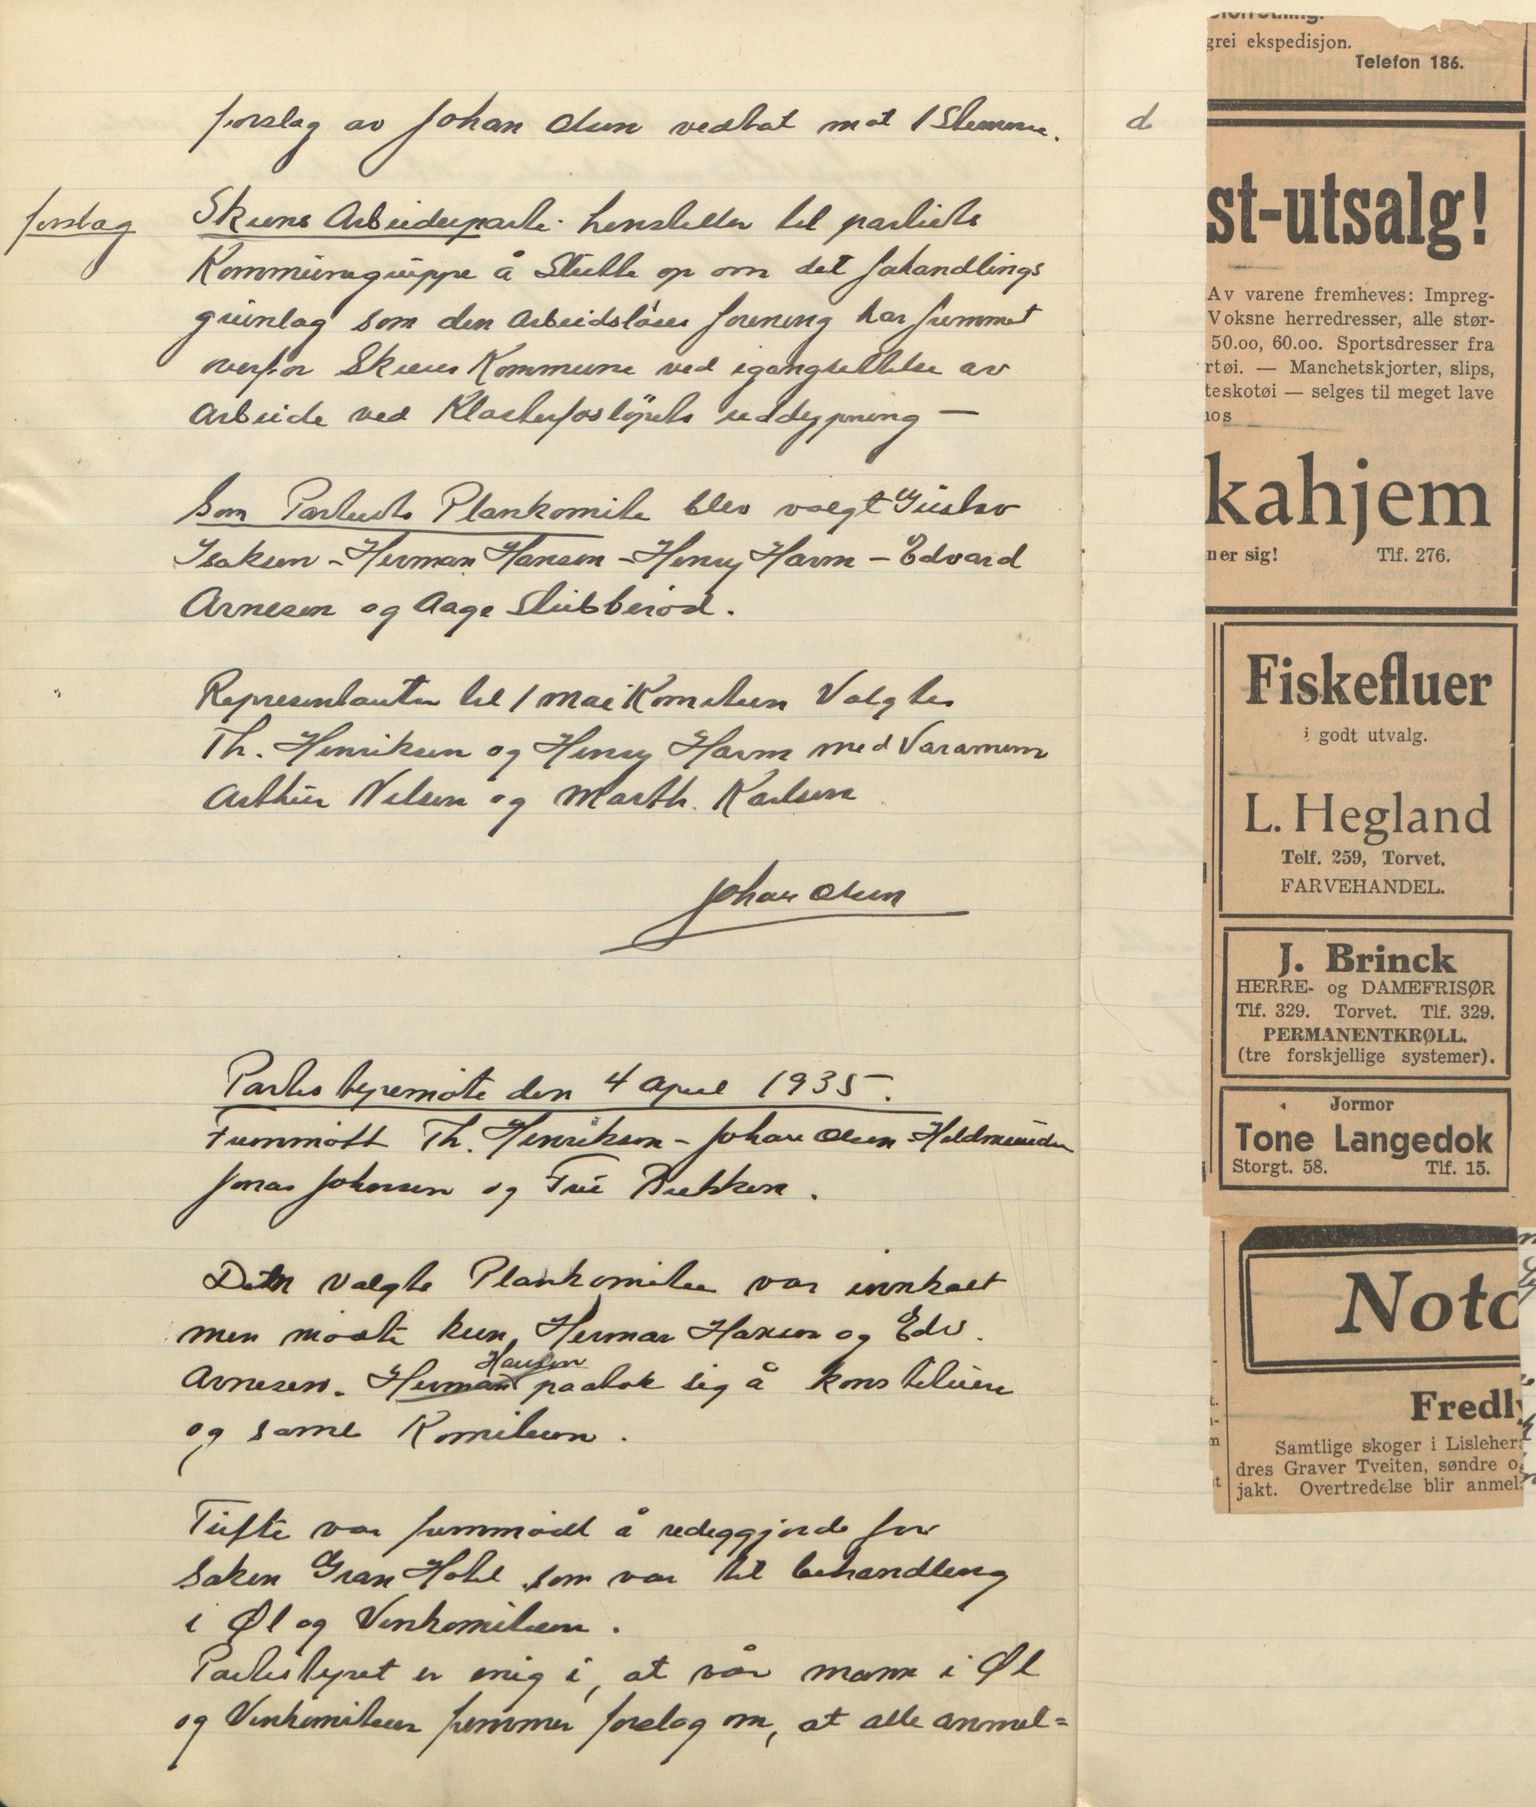 forslag av Johan Olsen vedtat mot 1 Stemme.
forslag
Skiens Arbeiderparti henstiller til partiets
Kommunegruppe å Støtte op om det fohandlings
grunlag som den Arbeidsløses forening har fremmet
overfor Skiens Kommune ved igangsettelse av
Arbeide ved Klosterfosløpets uddypning —
Som Partiets Plankomite blev valgt Gustav
Isaksen - Herman Hansen - Henry Harm - Edvard
Arnesen og Aage Stubberød.
Representanter til 1 mai Komiteen Valgtes
Th. Henriksen og Henry Harm med Varamenn
Arthur Nilsen og Marth. Karlsen
Johan Olsen
Partistyremøte den 4 April 1935.
Fremmøtt Th. Henriksen - Johan Olsen -
Jonas Johnsen og Fru Bekken.
Den valgte Plankomitee var innkalt
men møtte kun Herman Hansen og Edv.
Arnesen. Herman Hansen paatok sig å konstituere
og samle Komiteen.
Tufte var fremmødt å redeggjorde for
Saken Gran Hotel som var til behandling
i Øl og Vinkomiteen.
Partistyret er enig i, at vår mann i Øl
og Vinkomiteen fremmer forslag om, at alle anmel=
d
grei ekspedisjon.
Telefon 186.
st-utsalg!
Av varene fremheves: Impreg-
Voksne herredresser, alle stør-
50.oo, 60.oo. Sportsdresser fra
rtøi. — Manchetskjorter, slips,
teskotøi — selges til meget lave
hos
kahjem
ner sig! Tlf. 276.
Fiskefluer
i godt utvalg.
L. Hegland
Telf. 259, Torvet.
FARVEHANDEL.
J. Brinck
HERRE- og DAMEFRISØR
Tlf. 329. Torvet. Tlf. 329.
PERMANENTKRØLL.
(tre forskjellige systemer).
Jormor
Tone Langedok
Storgt. 58. Tlf. 15.
Noto
Fredly
Samtlige skoger i Lisleher
dres Graver Tveiten, søndre o
jakt. Overtredelse blir anmel